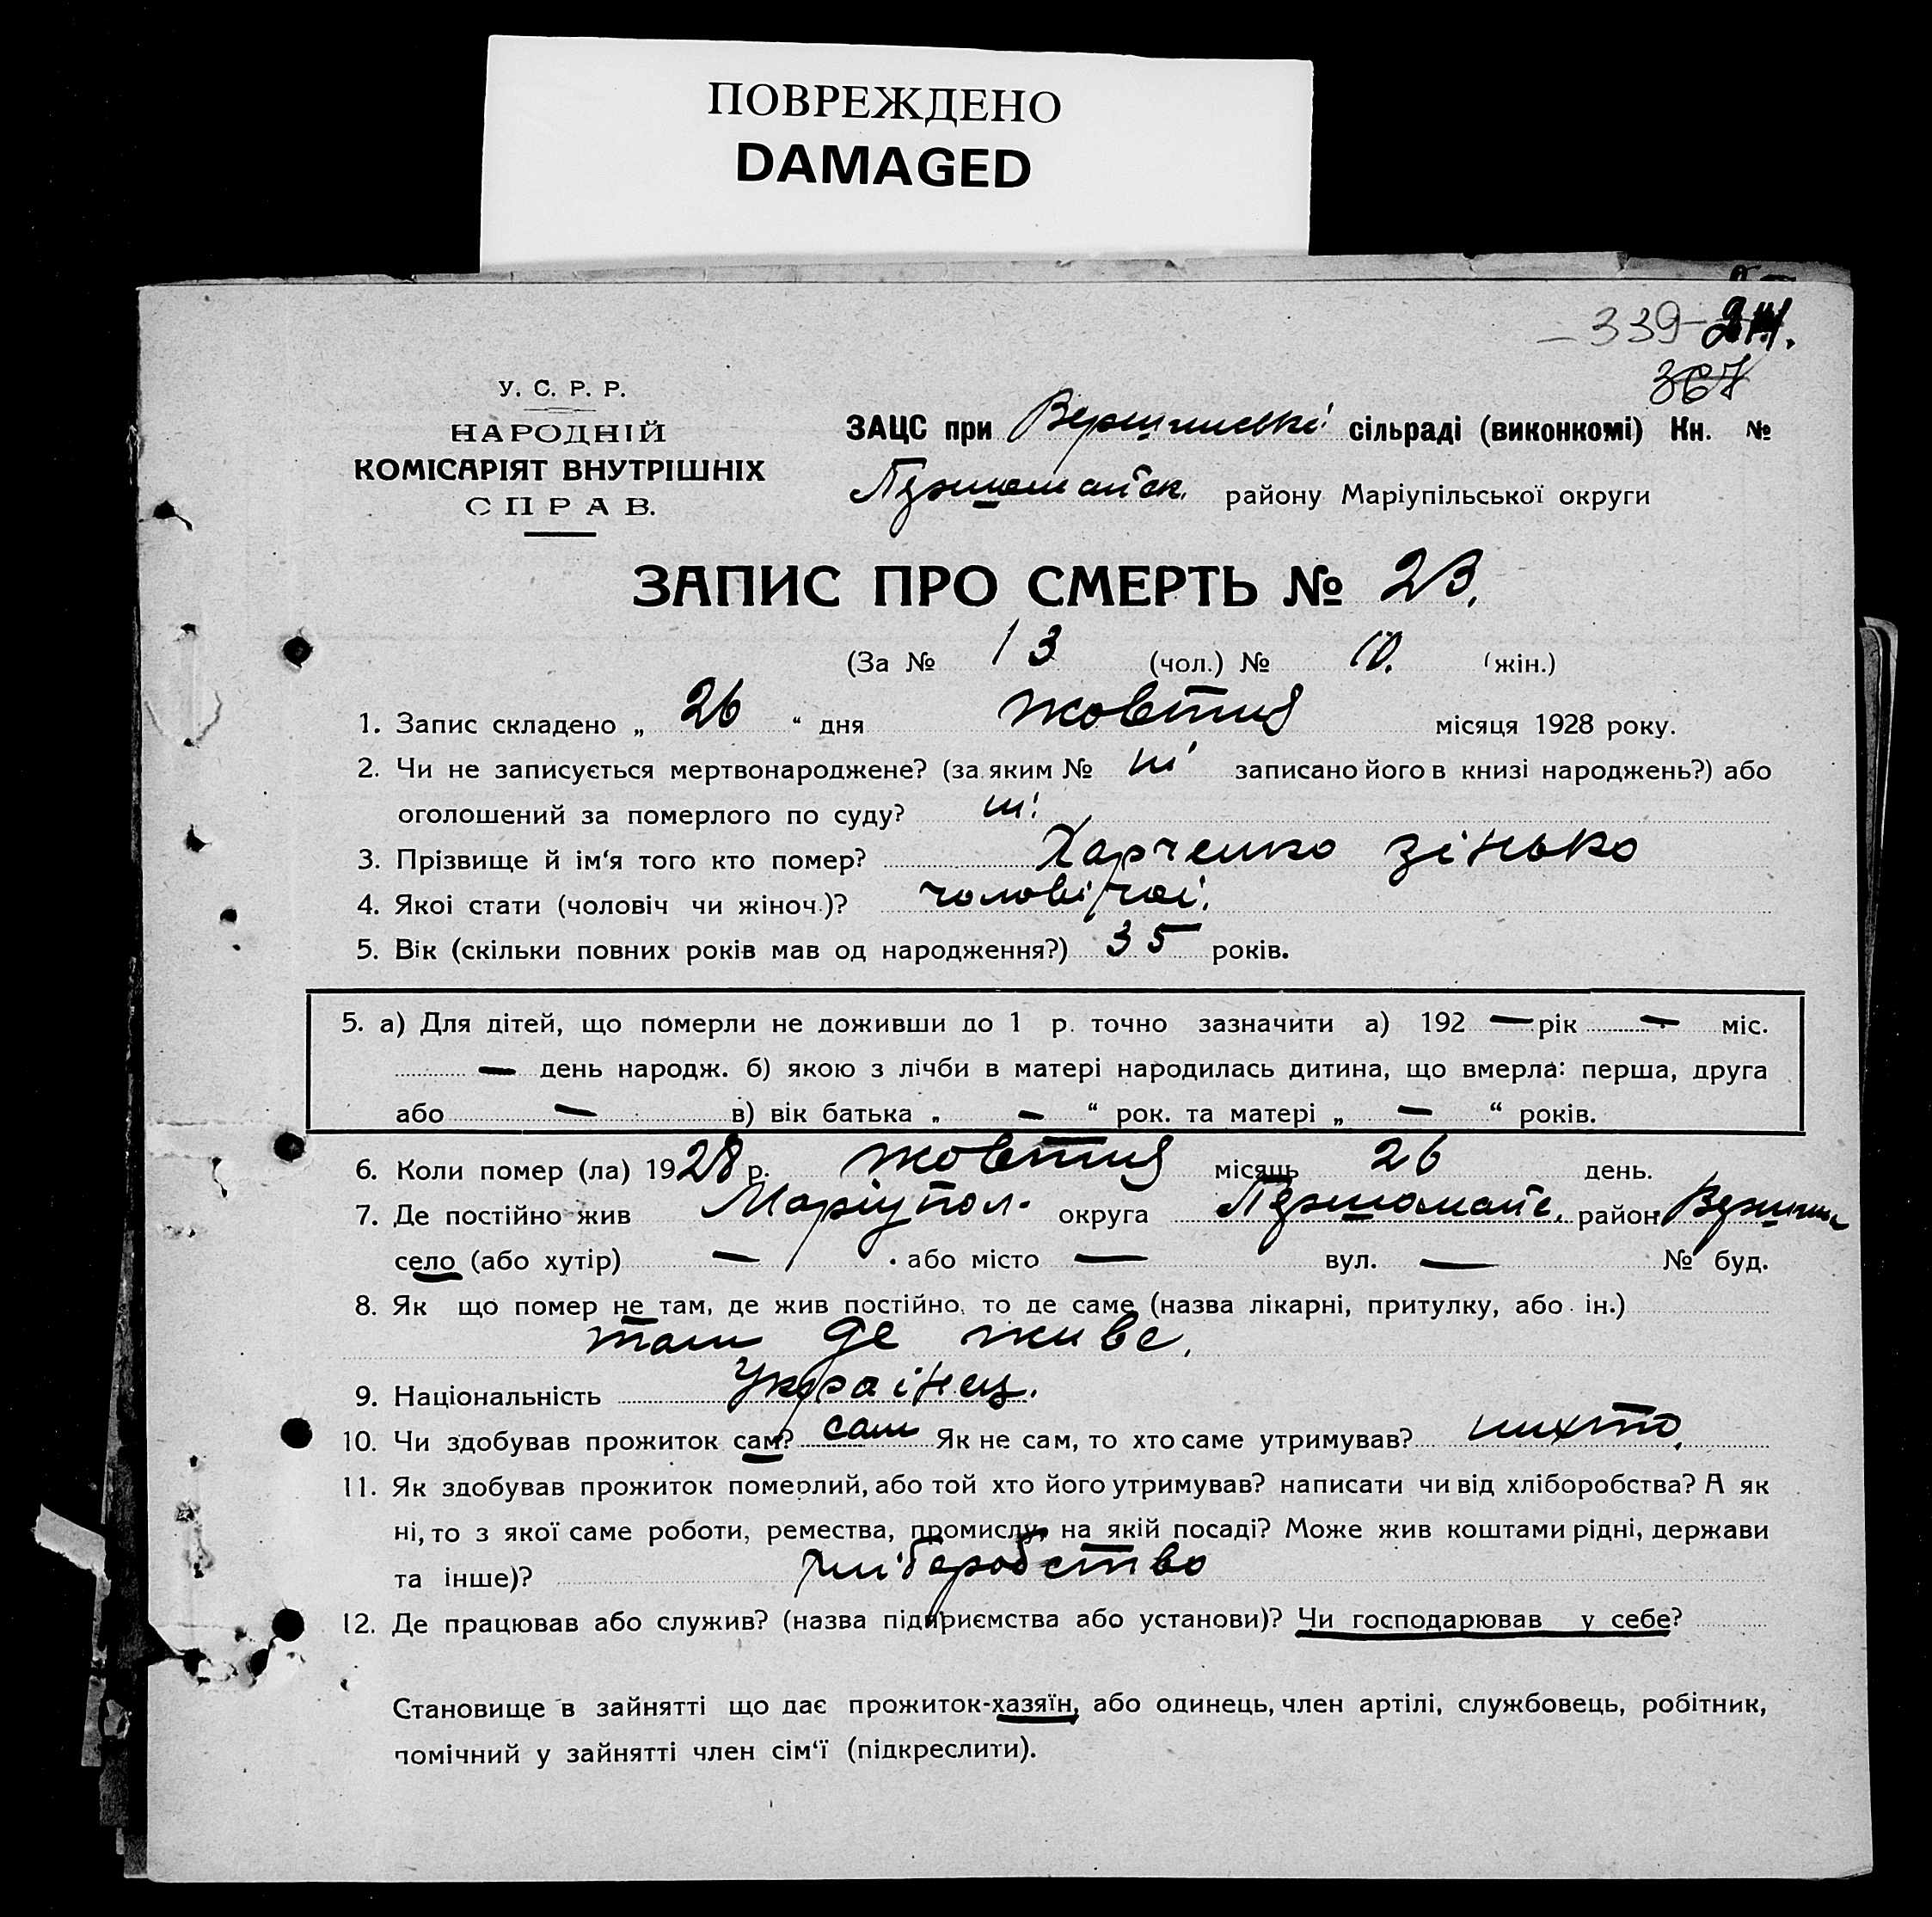 ПОВРЕЖДЕНО
DAMAGED
– 339
367
У. С. Р. Р.
НАРОДНІЙ
КОМІСАРІЯТ ВНУТРІШНІХ
СПРАВ.
ЗАЦС при Вершинські сільраді (виконкомі) Кн. №
Першомайск. району Маріупільської округи
ЗАПИС ПРО СМЕРТЬ № 23.
(За № 13 (чол.) № 10. (жін.)
1. Запис складено „ 26 “ дня жовтня місяця 1928 року.
2. Чи не записується мертвонароджене? (за яким № ні записано його в книзі народжень?) або
оголошений за померлого по суду? ні
3. Прізвище й ім‘я того кто помер? Харченко Зінько
4. Якоі стати (чоловіч чи жіноч.)? чоловічоі.
5. Вік (скільки повних років мав од народження?) 35 років.
5. а) Для дітей, що померли не доживши до 1 р. точно зазначити а) 192 — рік — міс.
— день народж. б) якою з лічби в матері народилась дитина, що вмерла: перша, друга
або — в) вік батька „ — “ рок. та матері „ — “ років.
6. Коли помер (ла) 1928 р. жовтня місяць 26 день.
7. Де постійно жив Маріупол. округа Першомайс. район Вершин
село (або хутір) — або місто — вул. — № буд.
8. Як що помер не там, де жив постійно, то де саме (назва лікарні, притулку, або ін.)
там де живе.
9. Національність Украінец.
10. Чи здобував прожиток сам? сам Як не сам, то хто саме утримував? нихто.
11. Як здобував прожиток померлий, або той хто його утримував? написати чи від хліборобства? А як
ні, то з якої саме роботи, ремества, промислу, на якій посаді? Може жив коштами рідні, держави
та інше)? хліборобство
12. Де працював або служив? (назва підприємства або установи)? Чи господарював у себе?
Становище в зайнятті що дає прожиток-хазяїн, або одинець, член артілі, службовець, робітник,
помічний у зайнятті член сім‘ї (підкреслити).